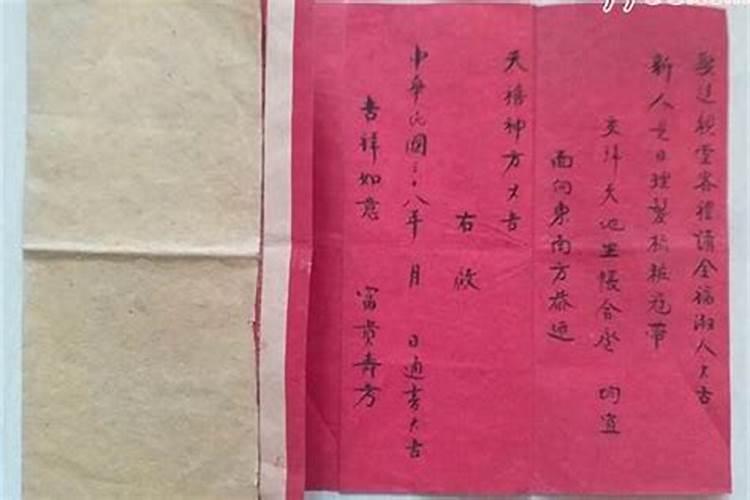 娶送親堂客禮請全福淑人大吉
新人是日理髮梳粧冠帶
交拜天地坐帳合卺 均宜
面向東南方恭迎
天禧神方大吉
右啟
中華民國三十八年 月 日適吉大吉
吉祥如意 富貴壽方